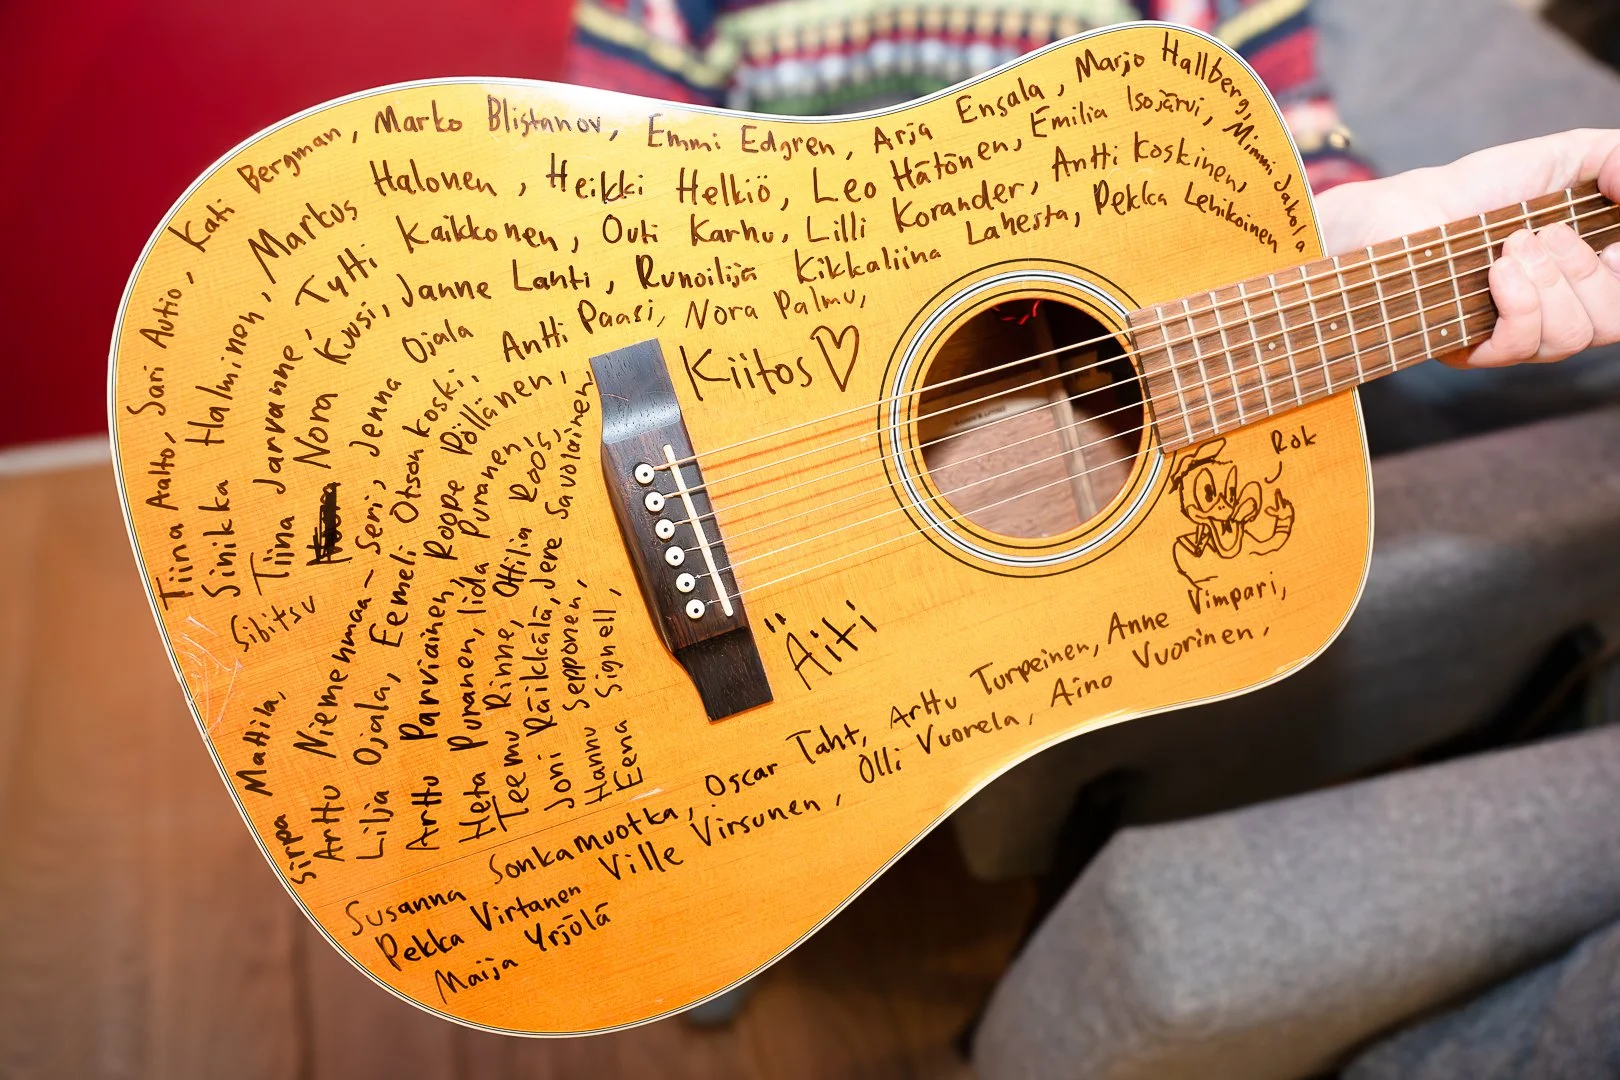 Tiina Aalto, Sari Autio, Kati Bergman, Marko Blistanov, Emmi Edgren, Arja Ensala, Marjo Hallberg,
Sinikka Halminen, Markus Halonen, Heikki Helkiö, Leo Hätönen, Emilia Isojärvi, Mimmi Jakola
Tiina Jarvanne, Tytti Kaikkonen, Outi Karhu, Lilli Korander, Antti Koskinen,
Nora Kuusi, Janne Lahti, Runoilija Kikkaliina Lahesta, Pekka Lehikoinen
Sibitsu
Sirpa Mattila,
Arttu Niemenmaa-Seri, Jenna Ojala
Lilja Ojala, Eemeli Otsonkoski, Antti Paasi, Nora Palmu,
Arttu Parviainen, Roope Pöllänen,
Heta Puranen, Iida Puranen,
Teemu Rinne, Ottilia Roos,
Joni Räikkälä, Jere Savolainen
Hannu Sepponen,
Eena Signell,
Susanna Sonkamuotka, Oscar Taht, Arttu Turpeinen, Anne Vimpari,
Pekka Virtanen Ville Virsunen, Olli Vuorela, Aino Vuorinen,
Maija Yrjölä
Kiitos
Äiti
Rok